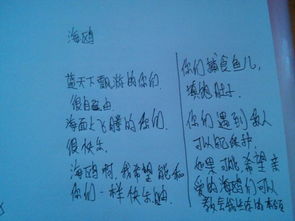 海鸥
蓝天下飘游的你们
很自由
海面上飞腾的你们.
很快乐.
海鸥啊,我希望能和
你们一样快乐
你们捕食鱼儿,
填饱肚子
你们遇到敌人
可以能保护
如果可能,希望亲
爱的海鸥们可以
教会我生存的本领